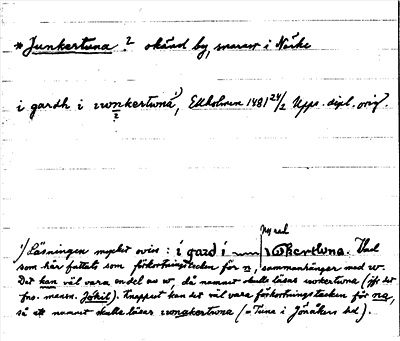 * Junkertuna ? okänd by, snarast i Närke
i gardh i wonkertwna¹⁾, Ekholmen 1481 24/2 Upps. dipl. orig.
?
Ny rad
¹⁾ Läsningen mycket oviss: i gard i — wokertwna. Vad
som här fattats som förkortningstecken för n, sammanhänger med w.
Det kan väl vara en del av w, då namnet skulle läsas wokertwna (jfr det
fno. mansn. Jokil). Knappast kan det väl vara förkortningstecken för na,
så att namnet skulle läsas wonakertwna (= Tuna i Jönåkers hd).